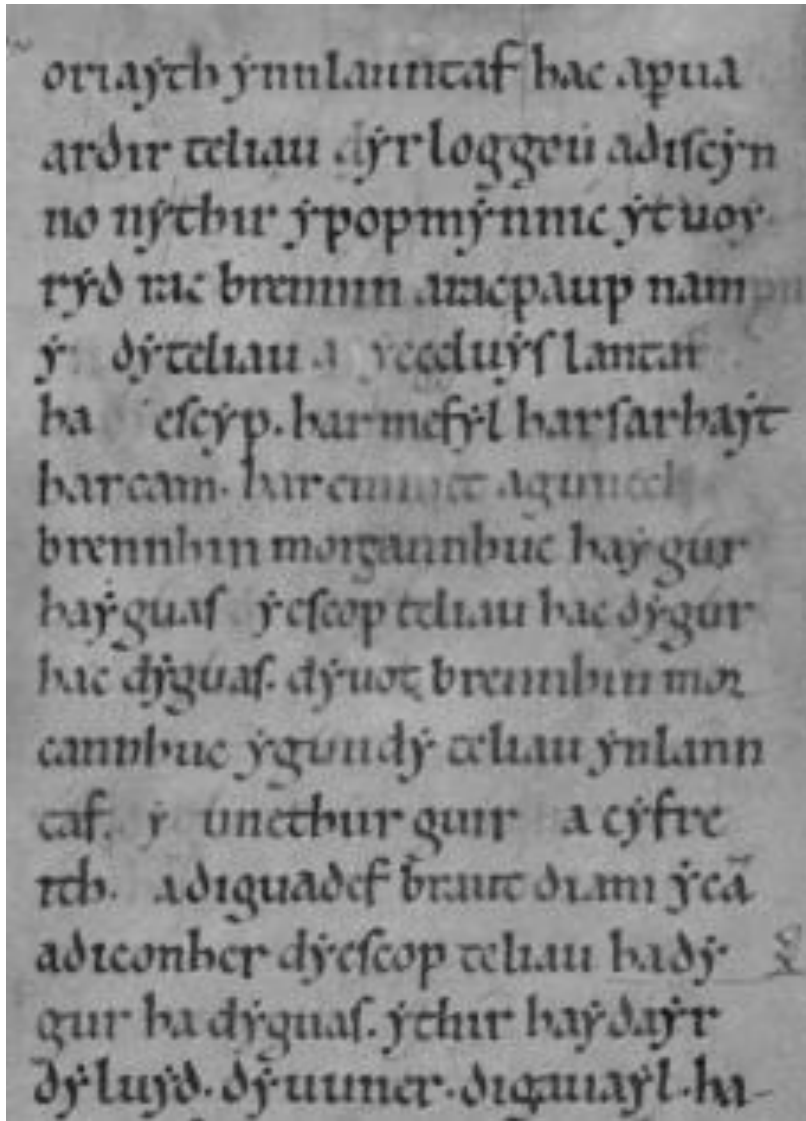 oriaẏth ẏnn lanntaf hac apua
ardir teliau dẏr loggou adiſcẏn
no nẏthir ẏpopmẏnnic ẏtuoẏ.
rẏd rac brennin arac paup nam
ẏ dẏteliau ẏeccluẏſ lantaf
ha eſcẏp. harmefẏl harſarhaẏt
harcam. har ennuet agunech
brennhin morgannhuc haẏgur
haẏguaſ ẏeſcop teliau hac dẏgur
hac dẏguaſ. dẏuot brennhin mor
cannhuc ẏgundẏ teliau ẏnlann
taf. ẏ unethur guir a cẏfre
ith. adiguadef braut diam ẏcā
adiconher dẏeſcop teliau hadẏ
gur ha dẏguaſ. ẏthir haẏdaẏr
dẏluẏd. dẏuuner. diguiaẏl. ha